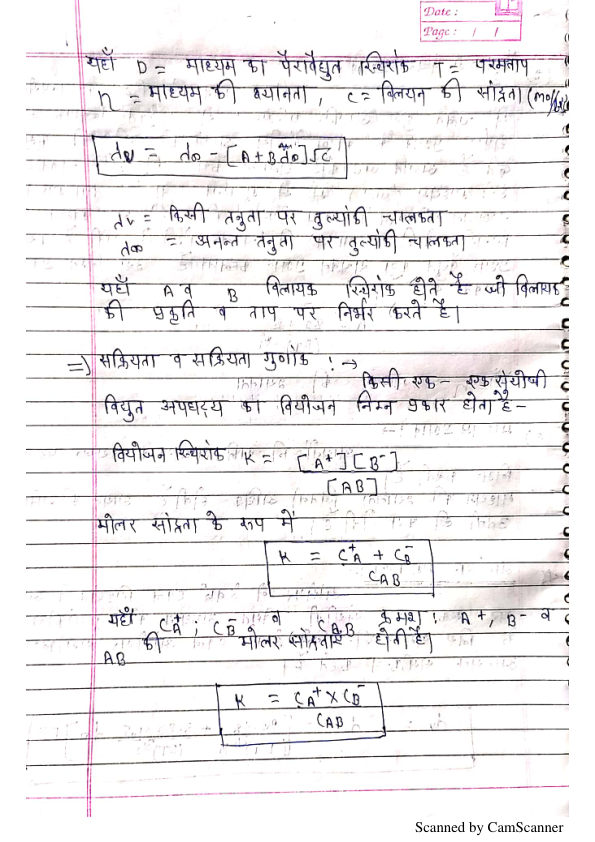 Date :
Page : / /
यहाँ D = माध्यम का पैरावैद्युत स्थिरांक T = परमताप
η = माध्यम की श्यानता , C = विलयन की सांद्रता
λv = λ∞ - [A + B λ∞] √C
λv = किसी तनुता पर तुल्यांकी चालकता
λ∞ = अनन्त तनुता पर तुल्यांकी चालकता
यहाँ A व B विलायक स्थिरांक होते है जो विलायक
की प्रकृति व ताप पर निर्भर करते है।
=) सक्रियता व सक्रियता गुणांक : →
किसी एक - एक संयोजी
विद्युत अपघट्य का वियोजन निम्न प्रकार होता है -
वियोजन स्थिरांक K = [A⁺] [B⁻]
[AB]
मोलर सांद्रता के रूप में
K = C⁺A + C⁻B
CAB
यहाँ C⁺A , C⁻B व CAB क्रमश : A⁺, B⁻ व
AB की मोलर सांद्रताएं होती है।
K = CA⁺ × CB⁻
CAB
Scanned by CamScanner